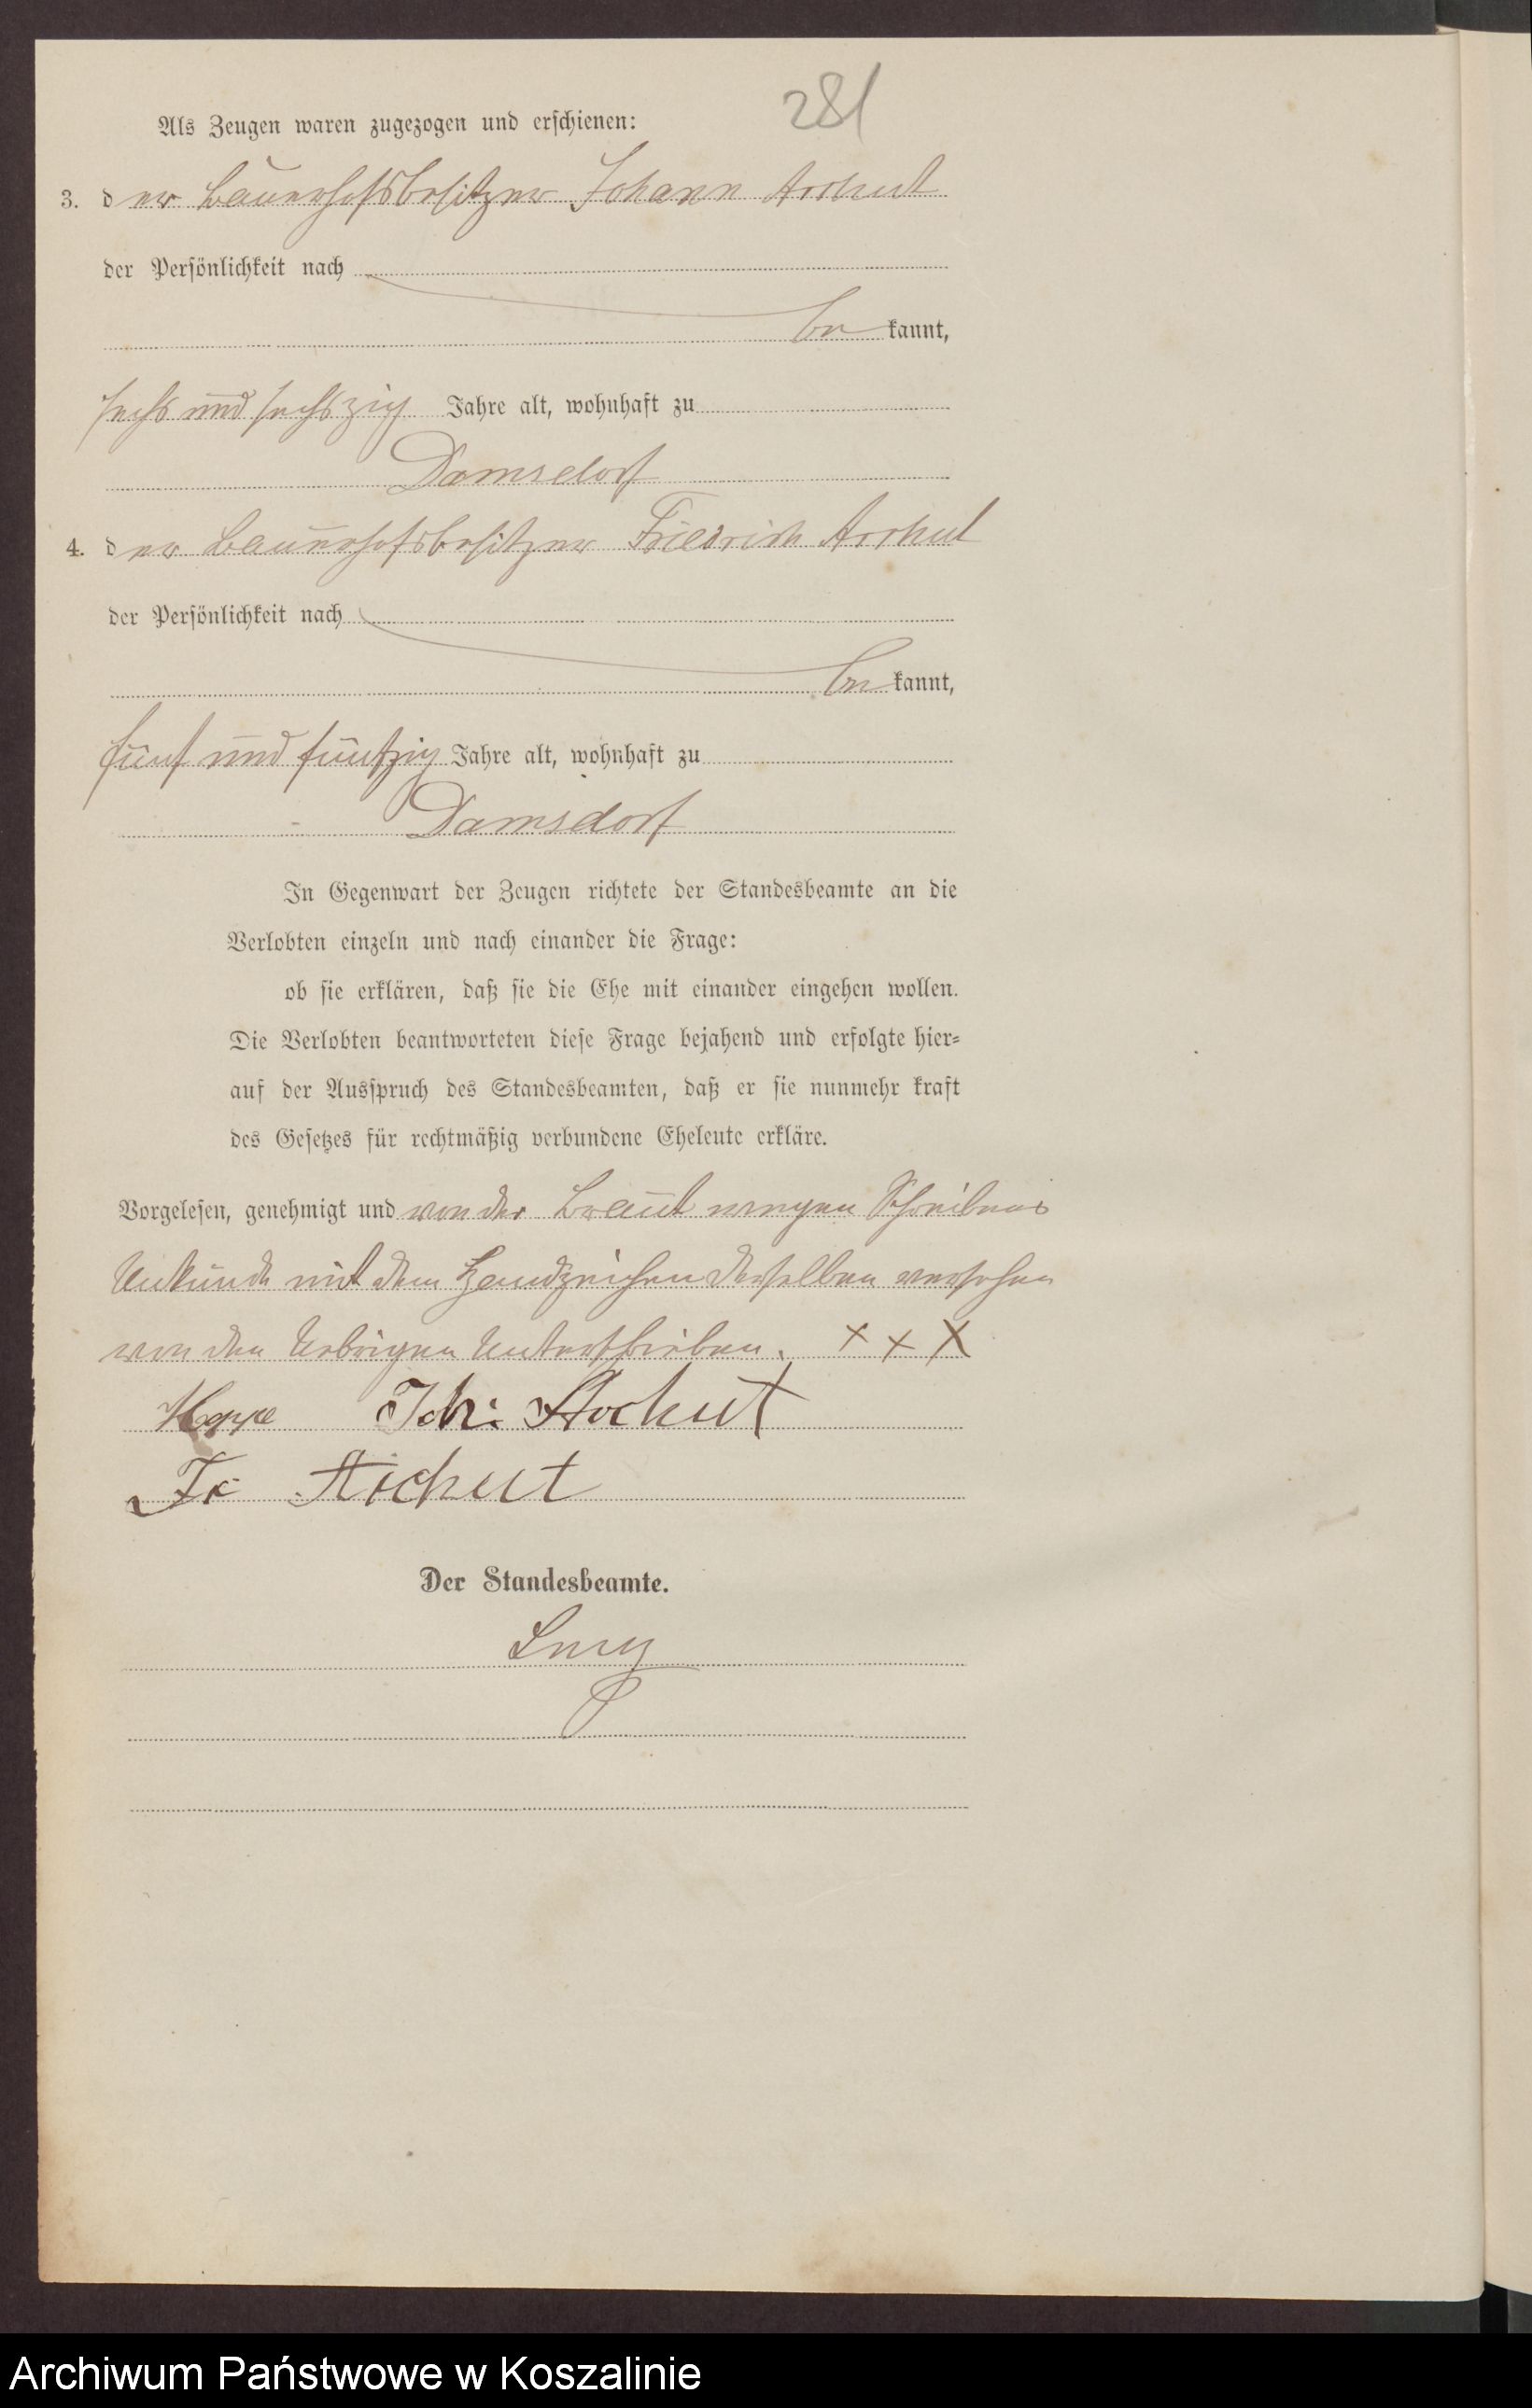 281
Als Zeugen waren zugezogen und erschienen:
3. der Bauerhofsbesitzer Johann Archut
der Persönlichkeit nach
be kannt,
sechs und sechszig Jahre alt, wohnhaft zu
Damsdorf
4. der Bauerhofsbesitzer Friedrich Archut
der Persönlichkeit nach
be kannt,
fünf und fünfzig Jahre alt, wohnhaft zu
Damsdorf
In Gegenwart der Zeugen richtete der Standesbeamte an die
Verlobten einzeln und nach einander die Frage:
ob sie erklären, daß sie die Ehe mit einander eingehen wollen.
Die Verlobten beantworteten diese Frage bejahend und erfolgte hier-
auf der Ausspruch des Standesbeamten, daß er sie nunmehr kraft
des Gesetzes für rechtmäßig verbundene Eheleute erkläre.
Vorgelesen, genehmigt und von der Braut wegen Schreibens
Unkunde mit dem Handzeichen derselben versehen
von den Uebrigen Unterschrieben. x x x
Hoppe Joh: Archut
Fr Archut
Der Standesbeamte.
Archiwum Państwowe w Koszalinie